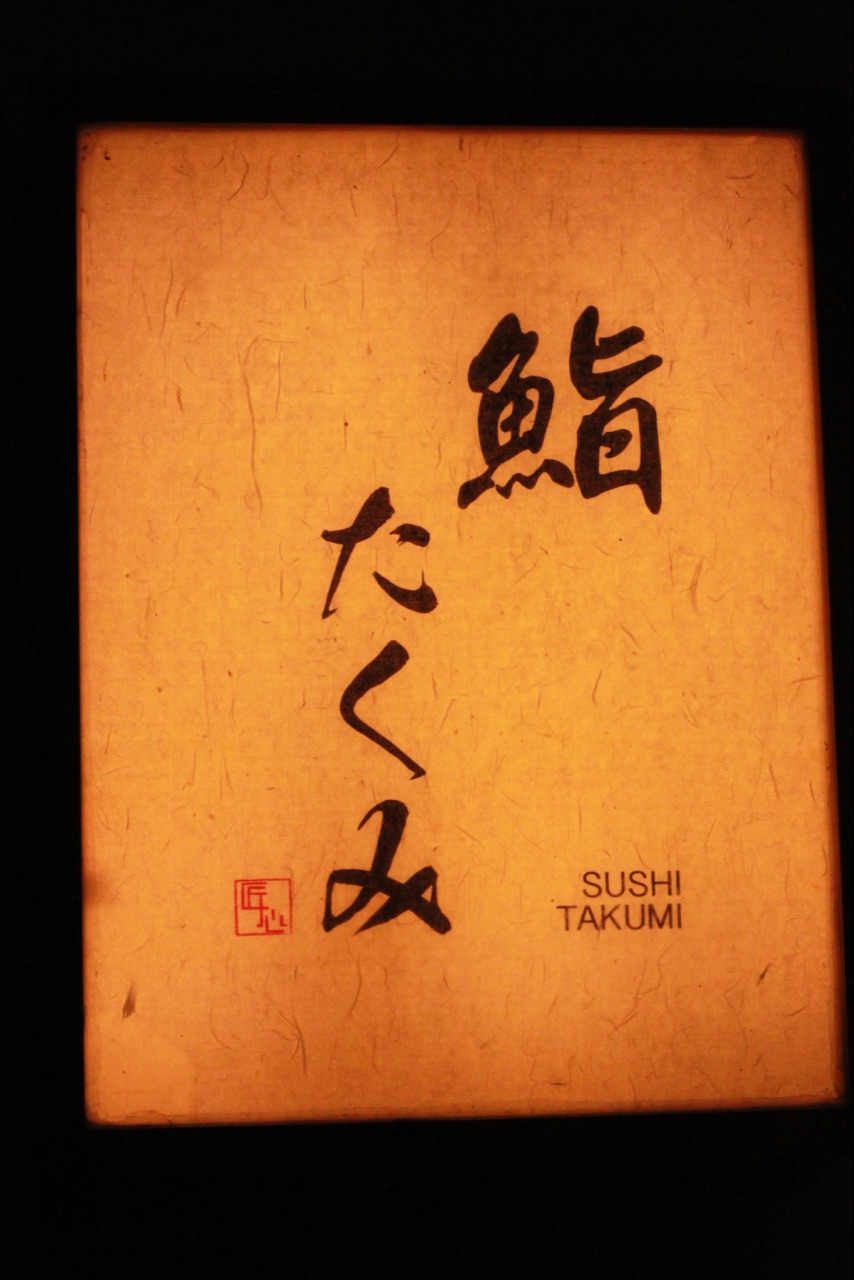 鮨
たくみ
SUSHI
TAKUMI
匠心